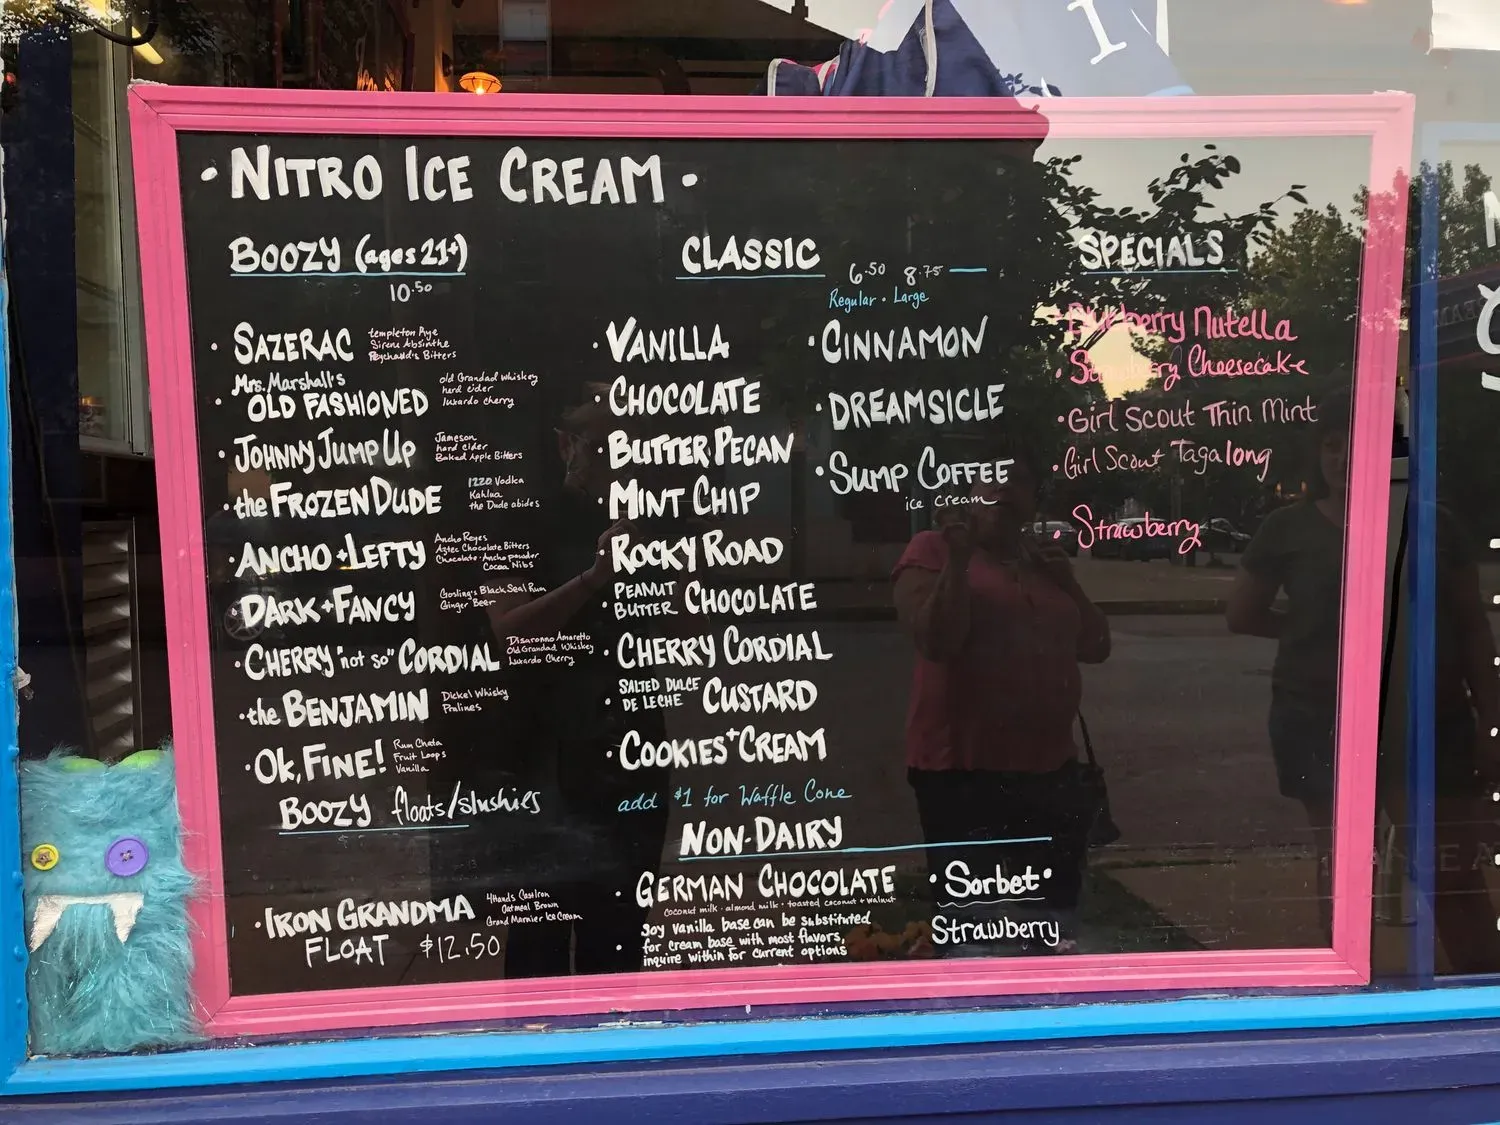 · NITRO ICE CREAM ·
BOOZY (ages 21+)
10.50
· SAZERAC
templeton Rye
Sirene Absinthe
Peychaud's Bitters
· Mrs. Marshall's
OLD FASHIONED
old Grandad Whiskey
hard cider
luxardo cherry
· JOHNNY JUMP UP
Jameson
hard cider
Baked Apple Bitters
· the FROZEN DUDE
1220 Vodka
Kahlua
the Dude abides
· ANCHO + LEFTY
Ancho Reyes
Aztec Chocolate Bitters
Chocolate · Ancho powder
Cocoa Nibs
· DARK + FANCY
Gosling's Black Seal Rum
Ginger Beer
· CHERRY "not so" CORDIAL
Disaronno Amaretto
Old Grandad Whiskey
Luxardo Cherry
· the BENJAMIN
Dickel Whisky
Pralines
· OK, FINE!
Rum Chata
Fruit Loops
Vanilla
BOOZY floats/slushies
· IRON GRANDMA
FLOAT $12.50
4Hands Cast Iron
Oatmeal Brown
Grand Marnier Ice Cream
CLASSIC
6.50 8.75
Regular · Large
· VANILLA
· CHOCOLATE
· BUTTER PECAN
· MINT CHIP
· ROCKY ROAD
· PEANUT BUTTER CHOCOLATE
· CHERRY CORDIAL
· SALTED DULCE DE LECHE CUSTARD
· COOKIES + CREAM
· CINNAMON
· DREAMSICLE
· SUMP COFFEE
ice cream
add $1 for Waffle Cone
NON-DAIRY
· GERMAN CHOCOLATE
coconut milk · almond milk · toasted coconut + walnut
· Soy Vanilla base can be substituted
for cream base with most flavors,
inquire within for current options
· Sorbet ·
Strawberry
SPECIALS
· Blueberry Nutella
· Strawberry Cheesecake
· Girl Scout Thin Mint
· Girl Scout Tagalong
· Strawberry